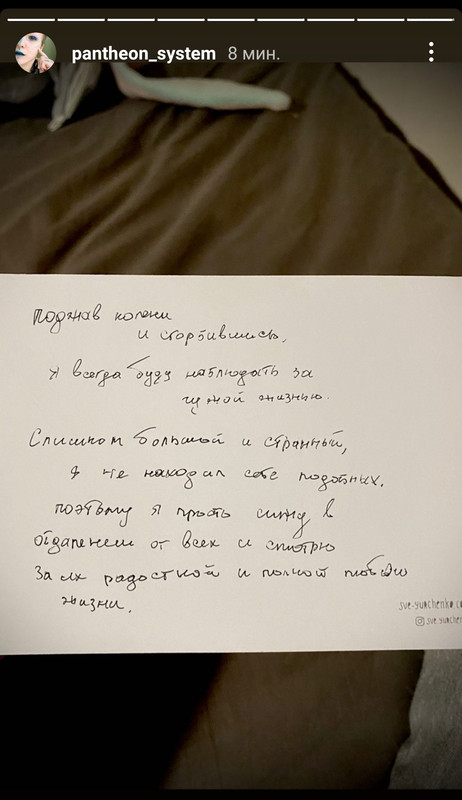 pantheon_system 8 мин.
поджав колени
и сгорбившись,
я всегда буду наблюдать за
чужой жизнью.
Слишком большой и странный,
я не находил себе подобных.
поэтому я просто сижу в
отдалении от всех и смотрю
за их радостной и полной любви
жизни.
sue-yunchenko.co
sue.yunchen